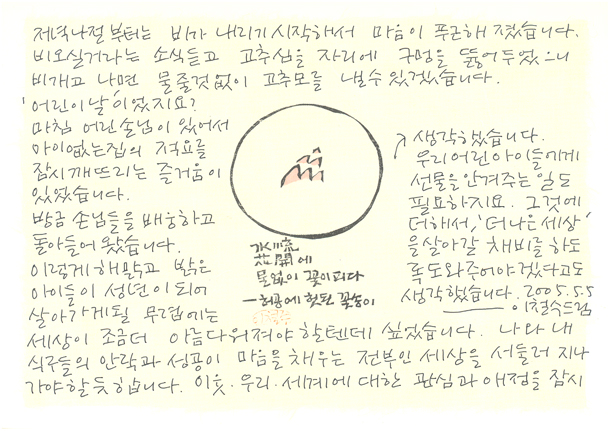 저녁나절부터는 비가 내리기 시작해서 마음이 푸근해 졌습니다.
비오실거라는 소식듣고 고추심을 자리에 구멍을 뚫어두었으니
비개고 나면 물줄것없이 고추모를 낼수있겠습니다.
'어린이날'이었지요?
마침 어린손님이 있어서
아이없는집의 적요를
잠시깨뜨리는 즐거움이
있었습니다.
방금 손님들을 배웅하고
돌아들어 왔습니다.
이렇게 해맑고 밝은
아이들이 성년이 되어
살아가게될 무렵에는
세상이 조금더 아름다워져야 할텐데 싶었습니다. 나와 내
식구들의 안락과 성공이 마음을 채우는 전부인 세상을 서둘러 지나
가야할 듯 합니다. 이웃·우리·세계에 대한 관심과 애정을 잠시
생각했습니다.
우리 어린아이들에게
선물을 안겨주는 일도
필요하지요. 그것에
더해서, '더 나은 세상'
을 살아갈 채비를 하도
록 도와주어야겠다고도
생각했습니다. 2005.5.5
이철수드림
水流
花開에
물없이 꽃이피다
—허공에 헛된 꽃송이